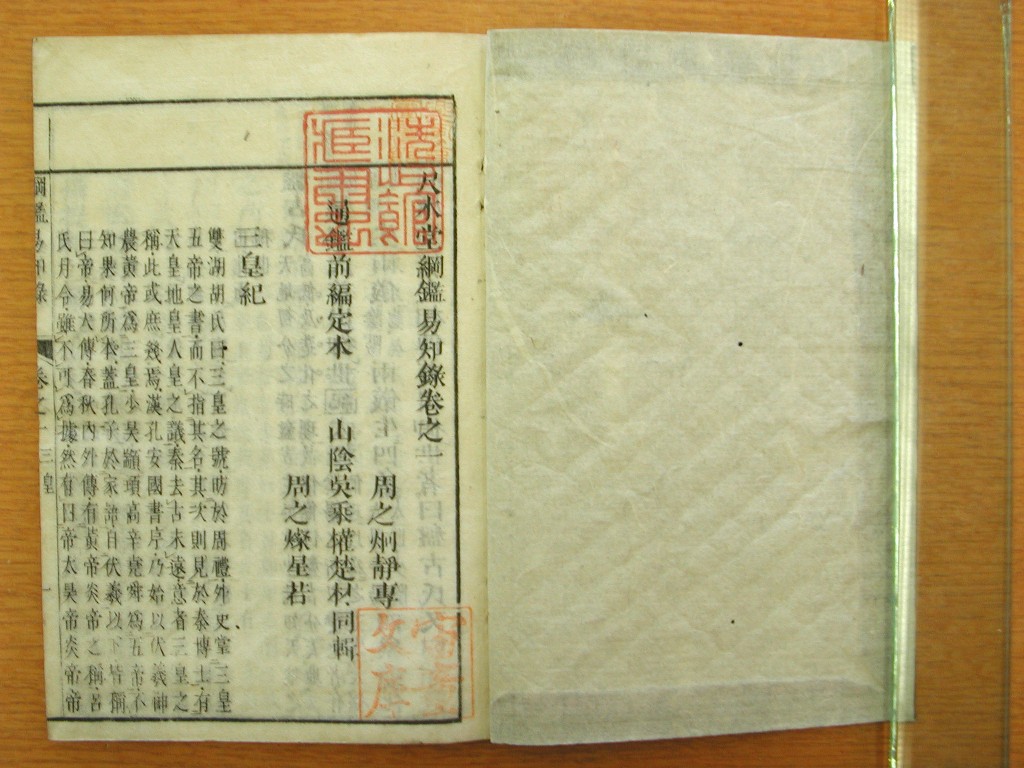 尺木堂綱鑑易知錄卷之一
周之炯靜專
通鑑前編定本 山陰吳乘權楚材同輯
周之燦星若
三皇紀
雙湖胡氏曰三皇之號昉於周禮外史掌三皇
五帝之書而不指其名其次則見於秦博士有
天皇地皇人皇之議秦去古未遠意者三皇之
稱此或庶幾焉漢孔安國書序乃始以伏羲神
農黃帝爲三皇少昊顓頊高辛堯舜爲五帝不
知果何所本蓋孔子於家語自伏羲以下皆稱
曰帝易大傳春秋內外傳有黃帝炎帝之稱呂
氏月令雖不可爲據然有曰帝太昊帝炎帝帝
綱鑑易知錄 卷之一 三皇 一
文庫